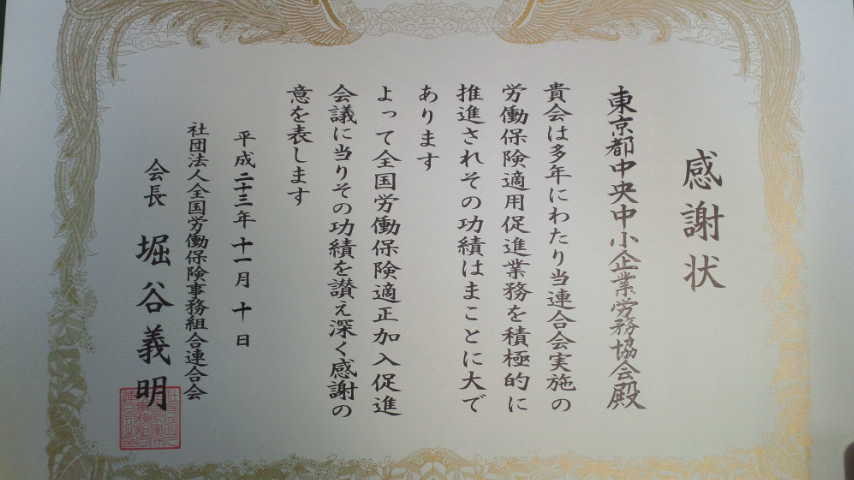 感謝状
東京都中央中小企業労務協会殿
貴会は多年にわたり当連合会実施の
労働保険適用促進業務を積極的に
推進されその功績はまことに大で
あります
よって全国労働保険適正加入促進
会議に当りその功績を讃え深く感謝の
意を表します
平成二十三年十一月十日
社団法人全国労働保険事務組合連合会
会長 堀谷義明